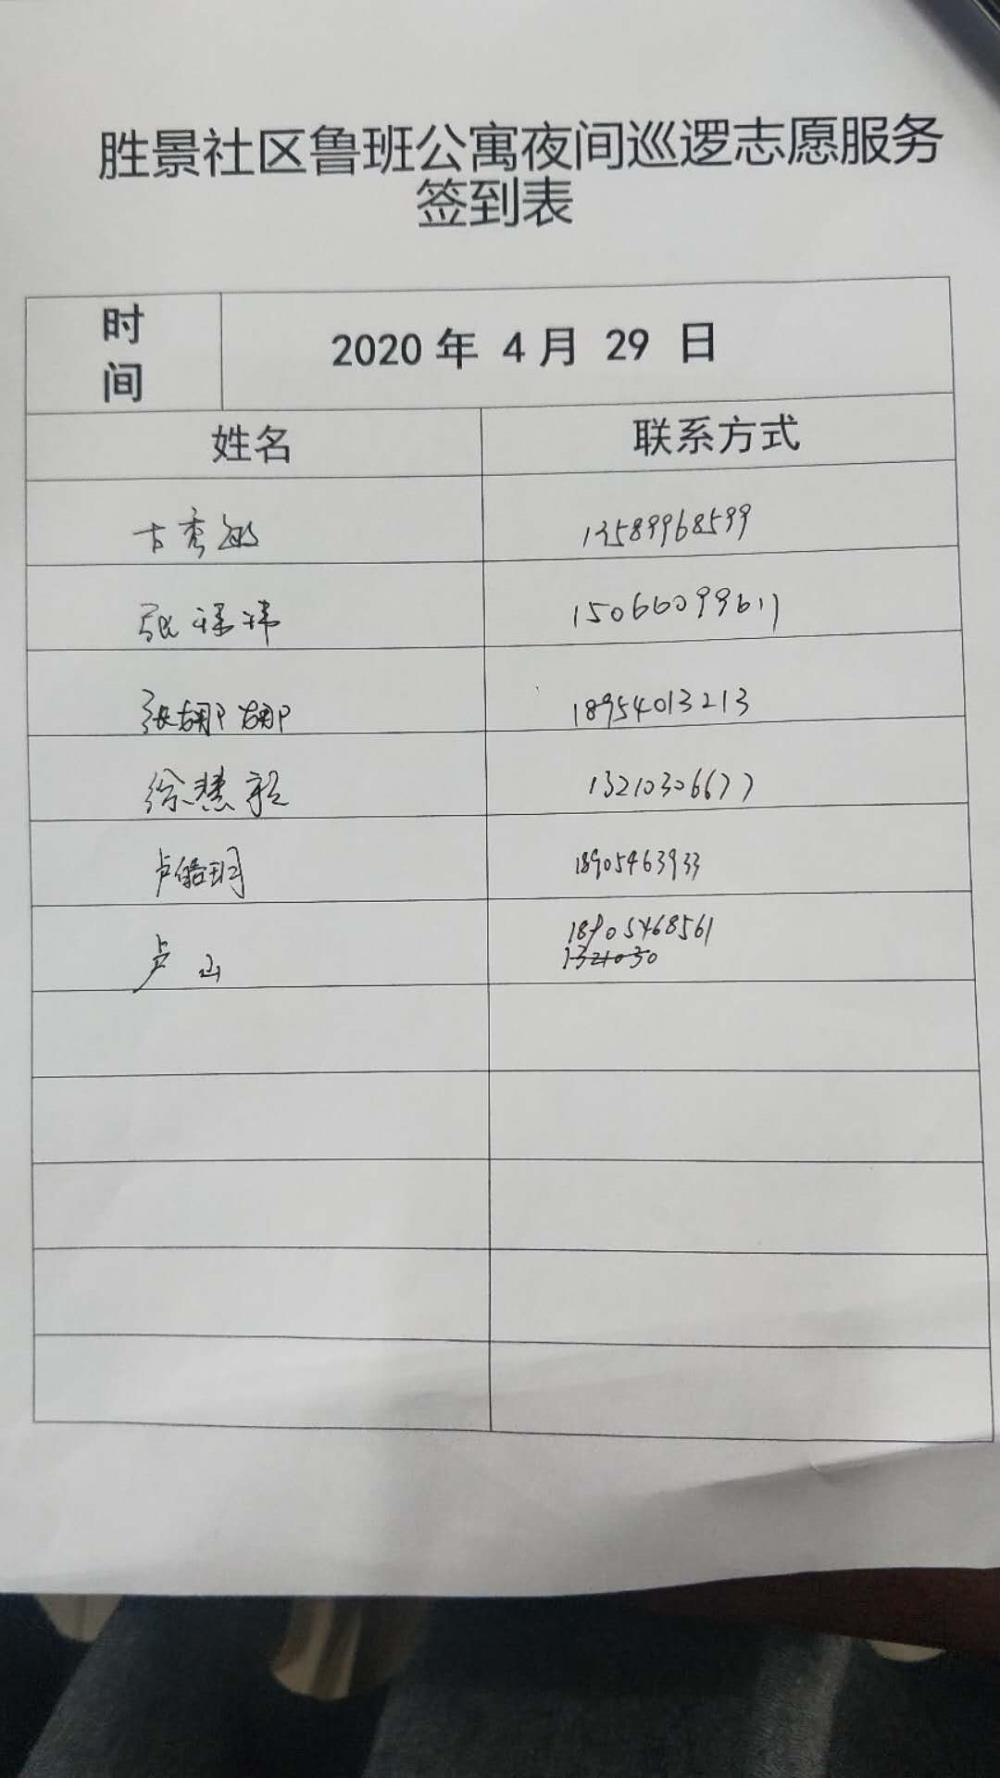 胜景社区鲁班公寓夜间巡逻志愿服务
签到表
时间 2020 年 4 月 29 日
姓名 联系方式
古秀敏 13589968599
张祥祎 15066099611
张娜娜 18954013213
徐慧 13210306677
卢皓玥 18905463933
卢山 18905468561
1321030